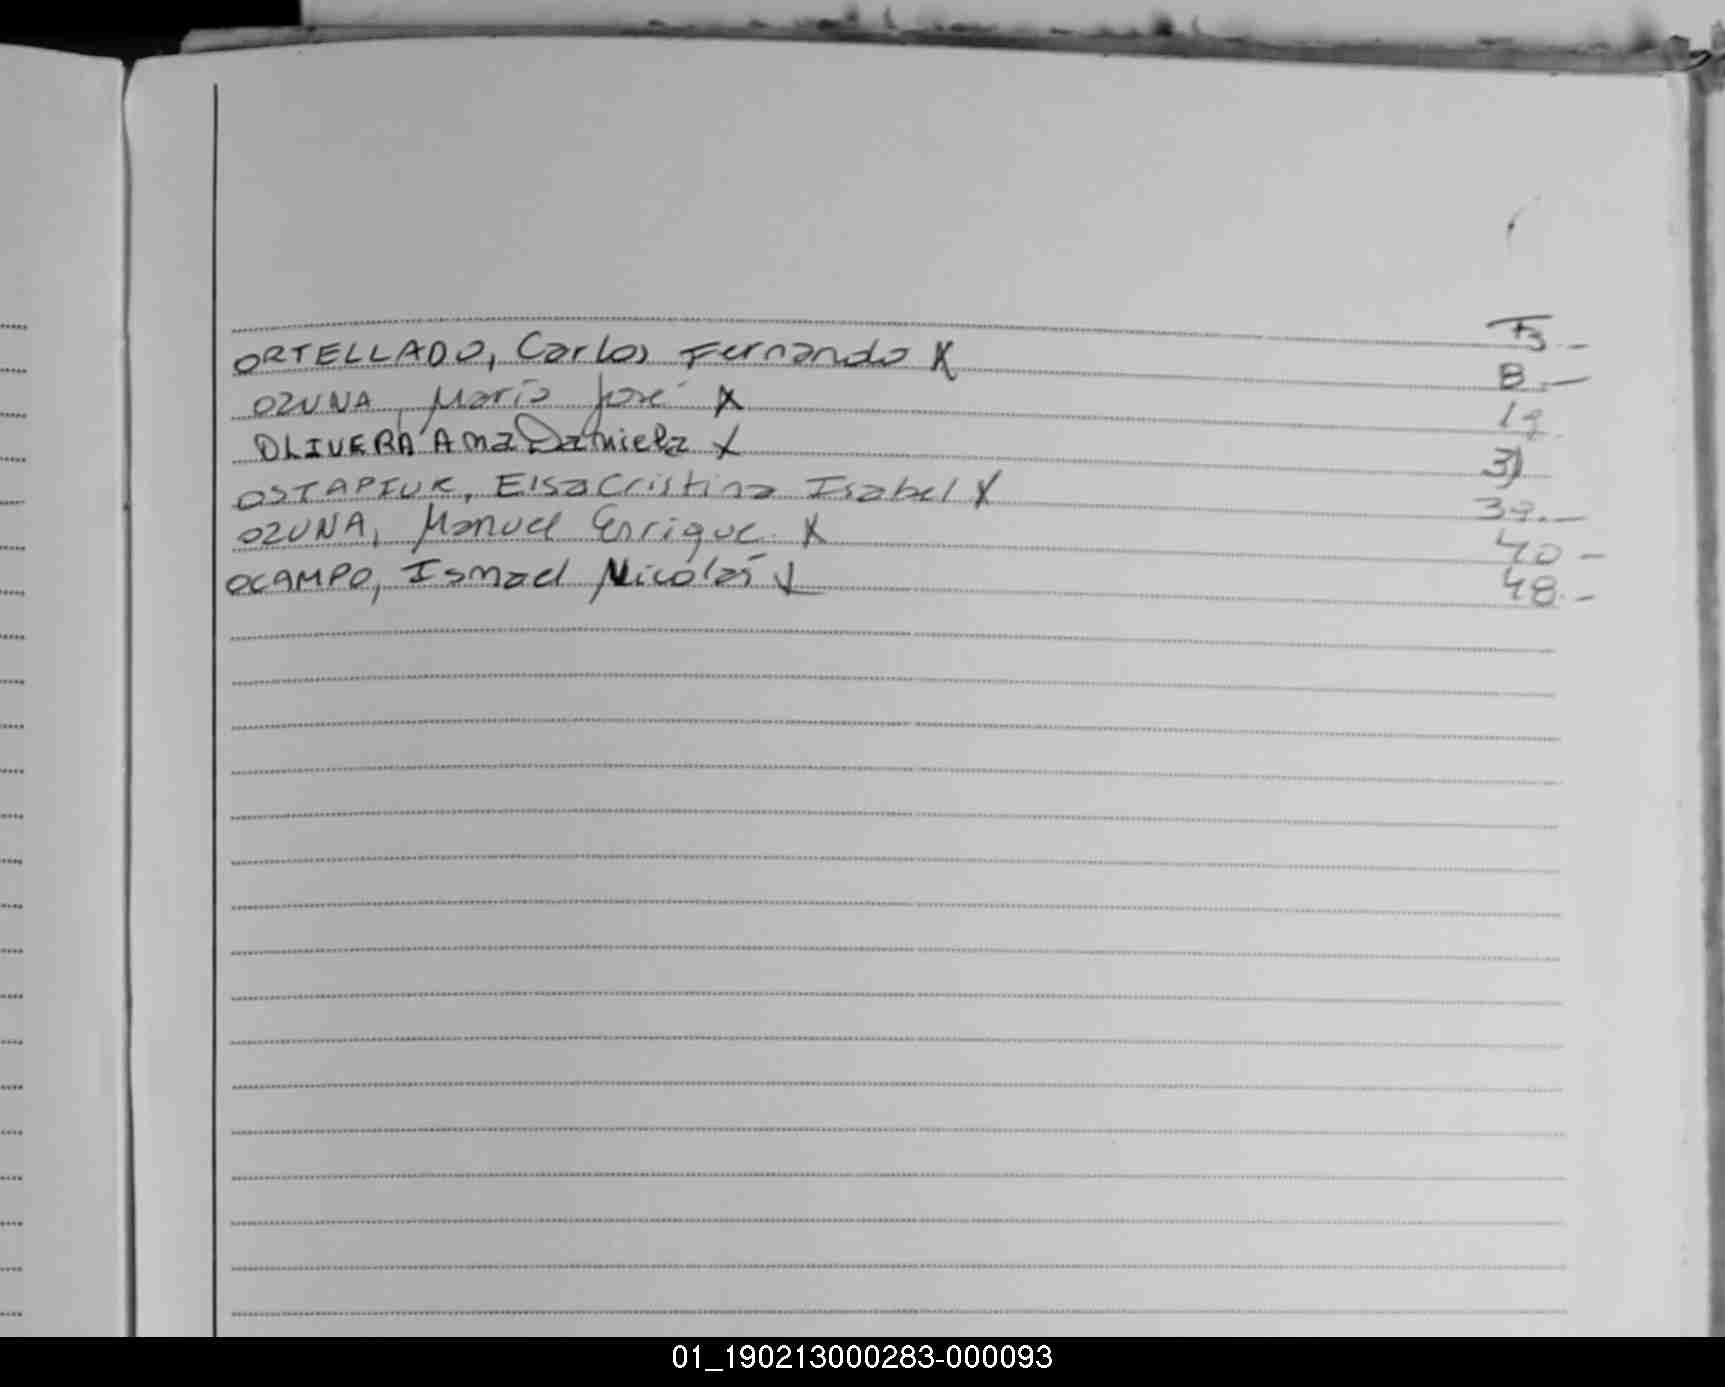 Fs.-
ORTELLADO, Carlos Fernando X 8.-
OZUNA, María José X 19.
OLIVERA Ana Daniela X 31
OSTAPIUK, Elsa Cristina Isabel X 39.-
OZUNA, Manuel Enrique. X 40-
OCAMPO, Ismael Nicolás X 48.-
01_190213000283-000093